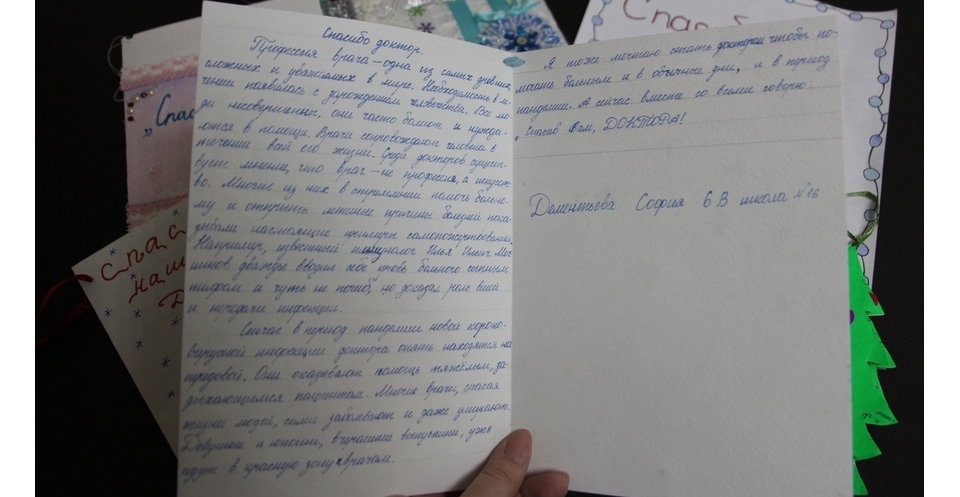 Спасибо доктор.
Профессия врача – одна из самых древних,
сложных и уважаемых в мире. Необходимость в ле-
чении появилась с зарождением человечества. Все лю-
ди несовершенны, они часто болеют и нужда-
ются в помощи. Врачи сопровождают человека в
течении всей его жизни. Среди докторов сущест-
вует мнение, что врач – не профессия, а искусст-
во. Многие из них в стремлении помочь больно-
му и открыть истинные причины болезней пока-
зывали настоящие примеры самопожертвования.
Например, известный иммунолог Илья Ильич Меч
ников дважды вводил себе кровь больного сыпным
тифом и чуть не погиб, но доказал роль вшей
и передачи инфекции.
Сейчас в период пандемии новой корона-
вирусной инфекции доктора опять находятся на
передовой. Они оказывают помощь тяжёлым, за-
дыхающимся пациентам. Многие врачи, спасая
жизни людей, сами заболевают и даже умирают.
Девушки и юноши, вчерашние выпускники, уже
идут в красную зону к врачам.
Я тоже мечтаю стать доктором чтобы по-
могать больным и в обычные дни, и в период
пандемии. А сейчас вместе со всеми говорю:
„Спасибо Вам, ДОКТОРА!
Дементьева София 6 В школа №26
„Спас
Спас
наш
Д
Спасиб